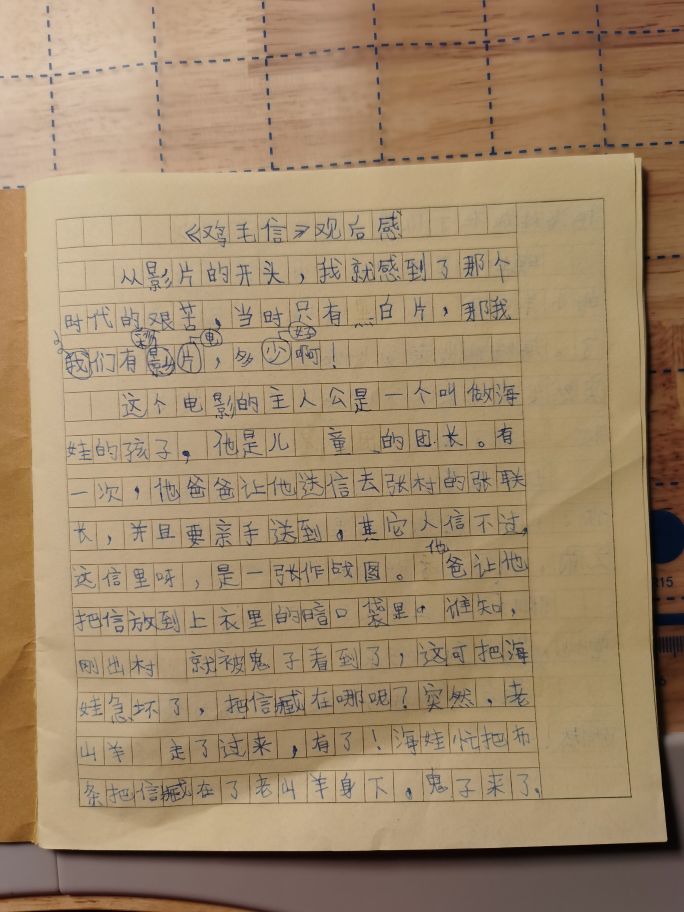 《鸡毛信》观后感
从影片的开头，我就感到了那个
时代的艰苦。当时只有 白片，那我
我们有彩影片电，多少好啊！
这个电影的主人公是一个叫做海
娃的孩子，他是儿童的团长。有
一次，他爸爸让他送信去张村的张联
长，并且要亲手送到。其它人信不过。
这信里呀，是一张作战图。他爸让他
把信放到上衣里的暗口袋里。谁知，
刚出村 就被鬼子看到了，这可把海
娃急坏了，把信藏在哪呢？突然，老
山羊 走了过来，有了！海娃忙把布
条把信藏在了老山羊身下。鬼子来了。
15